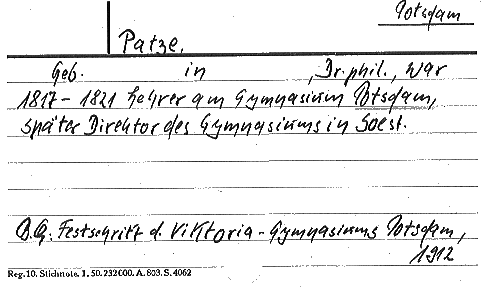 Potsdam
Patze.
Geb. in , Dr. phil., war
1817-1821 Lehrer am Gymnasium Potsdam,
später Direktor des Gymnasiums in Soest.
B.Q: Festschrift d. Viktoria-Gymnasiums Potsdam,
1912
Reg.10. Stichnote. 1. 50. 232000. A. 803. S. 4062